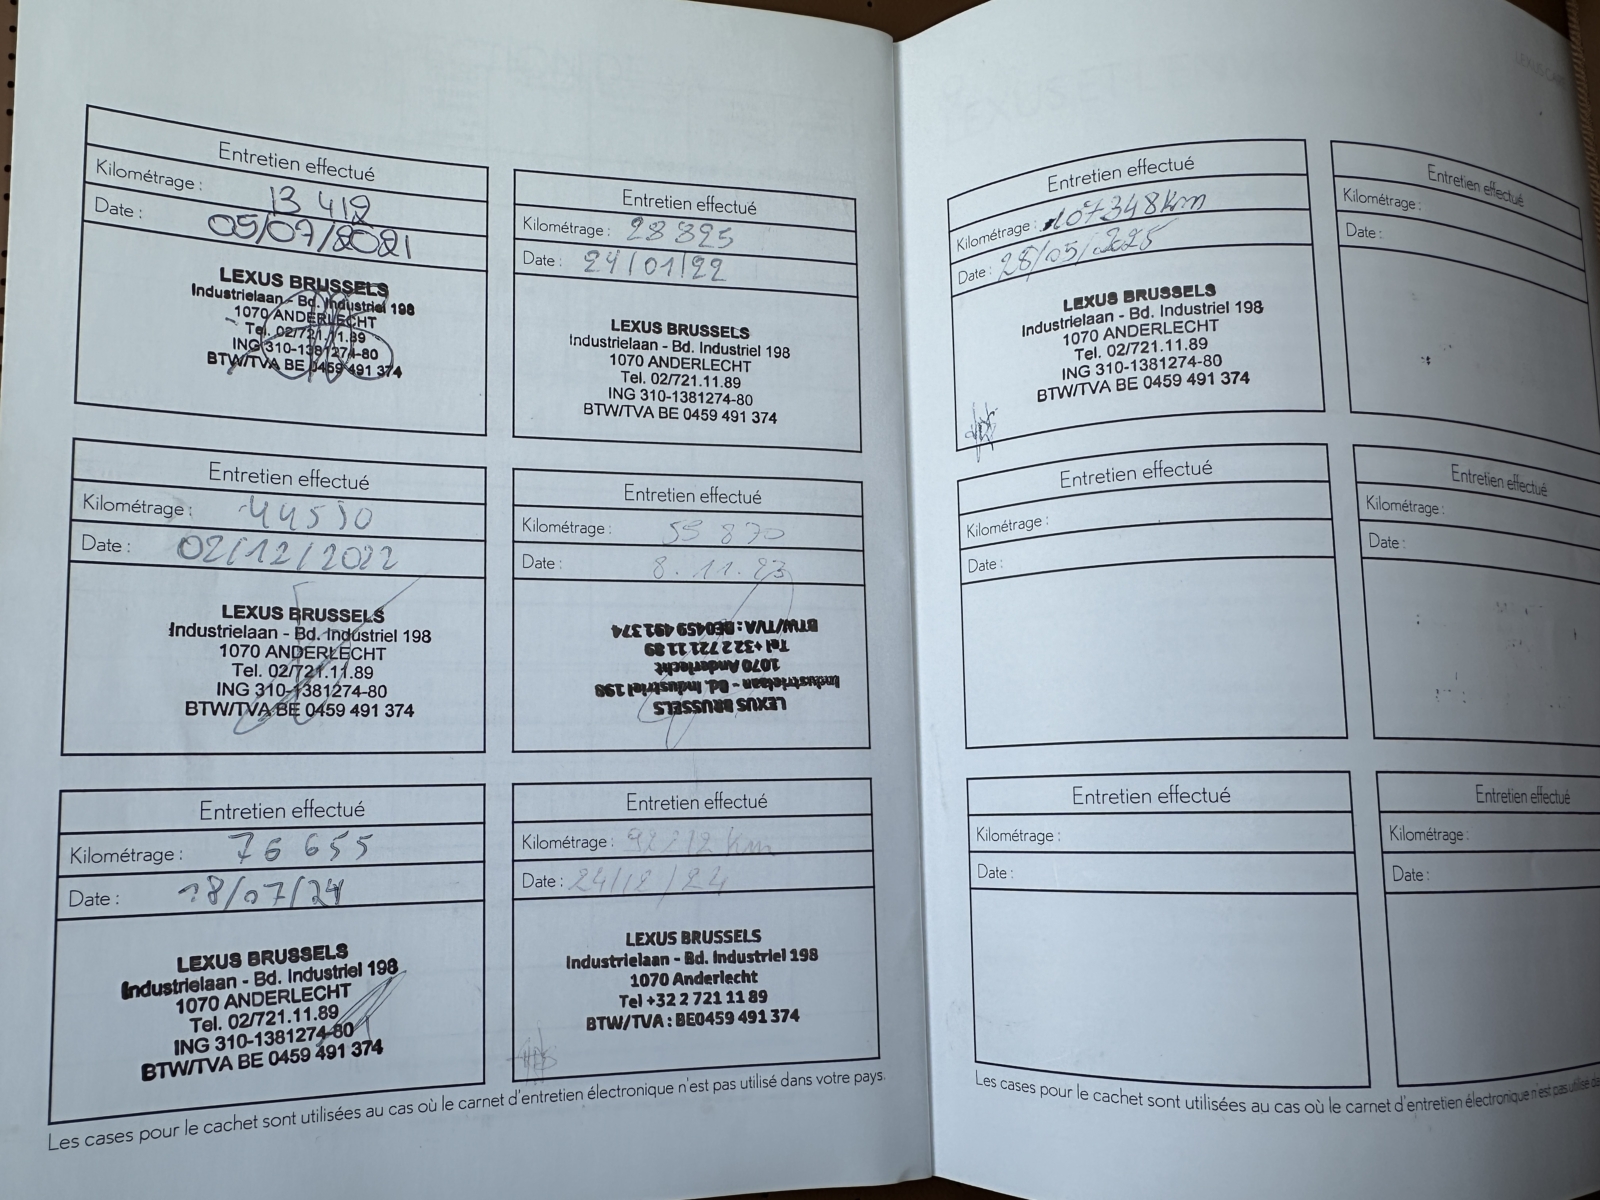 Entretien effectué
Kilométrage : 13 412
Date : 05/07/2021
LEXUS BRUSSELS
Industrielaan - Bd. Industriel 198
1070 ANDERLECHT
Tel. 02/721.11.89
ING 310-1381274-80
BTW/TVA BE 0459 491 374
Entretien effectué
Kilométrage : 28 825
Date : 24/01/22
LEXUS BRUSSELS
Industrielaan - Bd. Industriel 198
1070 ANDERLECHT
Tel. 02/721.11.89
ING 310-1381274-80
BTW/TVA BE 0459 491 374
Entretien effectué
Kilométrage : 44530
Date : 02/12/2022
LEXUS BRUSSELS
Industrielaan - Bd. Industriel 198
1070 ANDERLECHT
Tel. 02/721.11.89
ING 310-1381274-80
BTW/TVA BE 0459 491 374
Entretien effectué
Kilométrage : 59 870
Date : 8.11.23
LEXUS BRUSSELS
Industrielaan - Bd. Industriel 198
1070 Anderlecht
Tel +32 2 721 11 89
BTW/TVA : BE0459 491 374
Entretien effectué
Kilométrage : 76 655
Date : 18/07/24
LEXUS BRUSSELS
Industrielaan - Bd. Industriel 198
1070 ANDERLECHT
Tel. 02/721.11.89
ING 310-1381274-80
BTW/TVA BE 0459 491 374
Entretien effectué
Kilométrage : 92212 km
Date : 24/12/24
LEXUS BRUSSELS
Industrielaan - Bd. Industriel 198
1070 Anderlecht
Tel +32 2 721 11 89
BTW/TVA : BE0459 491 374
Les cases pour le cachet sont utilisées au cas où le carnet d'entretien électronique n'est pas utilisé dans votre pays.
Entretien effectué
Kilométrage : 107348km
Date : 28/05/2025
LEXUS BRUSSELS
Industrielaan - Bd. Industriel 198
1070 ANDERLECHT
Tel. 02/721.11.89
ING 310-1381274-80
BTW/TVA BE 0459 491 374
Entretien effectué
Kilométrage :
Date :
Entretien effectué
Kilométrage :
Date :
Entretien effectué
Kilométrage :
Date :
Entretien effectué
Kilométrage :
Date :
Entretien effectué
Kilométrage :
Date :
Les cases pour le cachet sont utilisées au cas où le carnet d'entretien électronique n'est pas utilisé